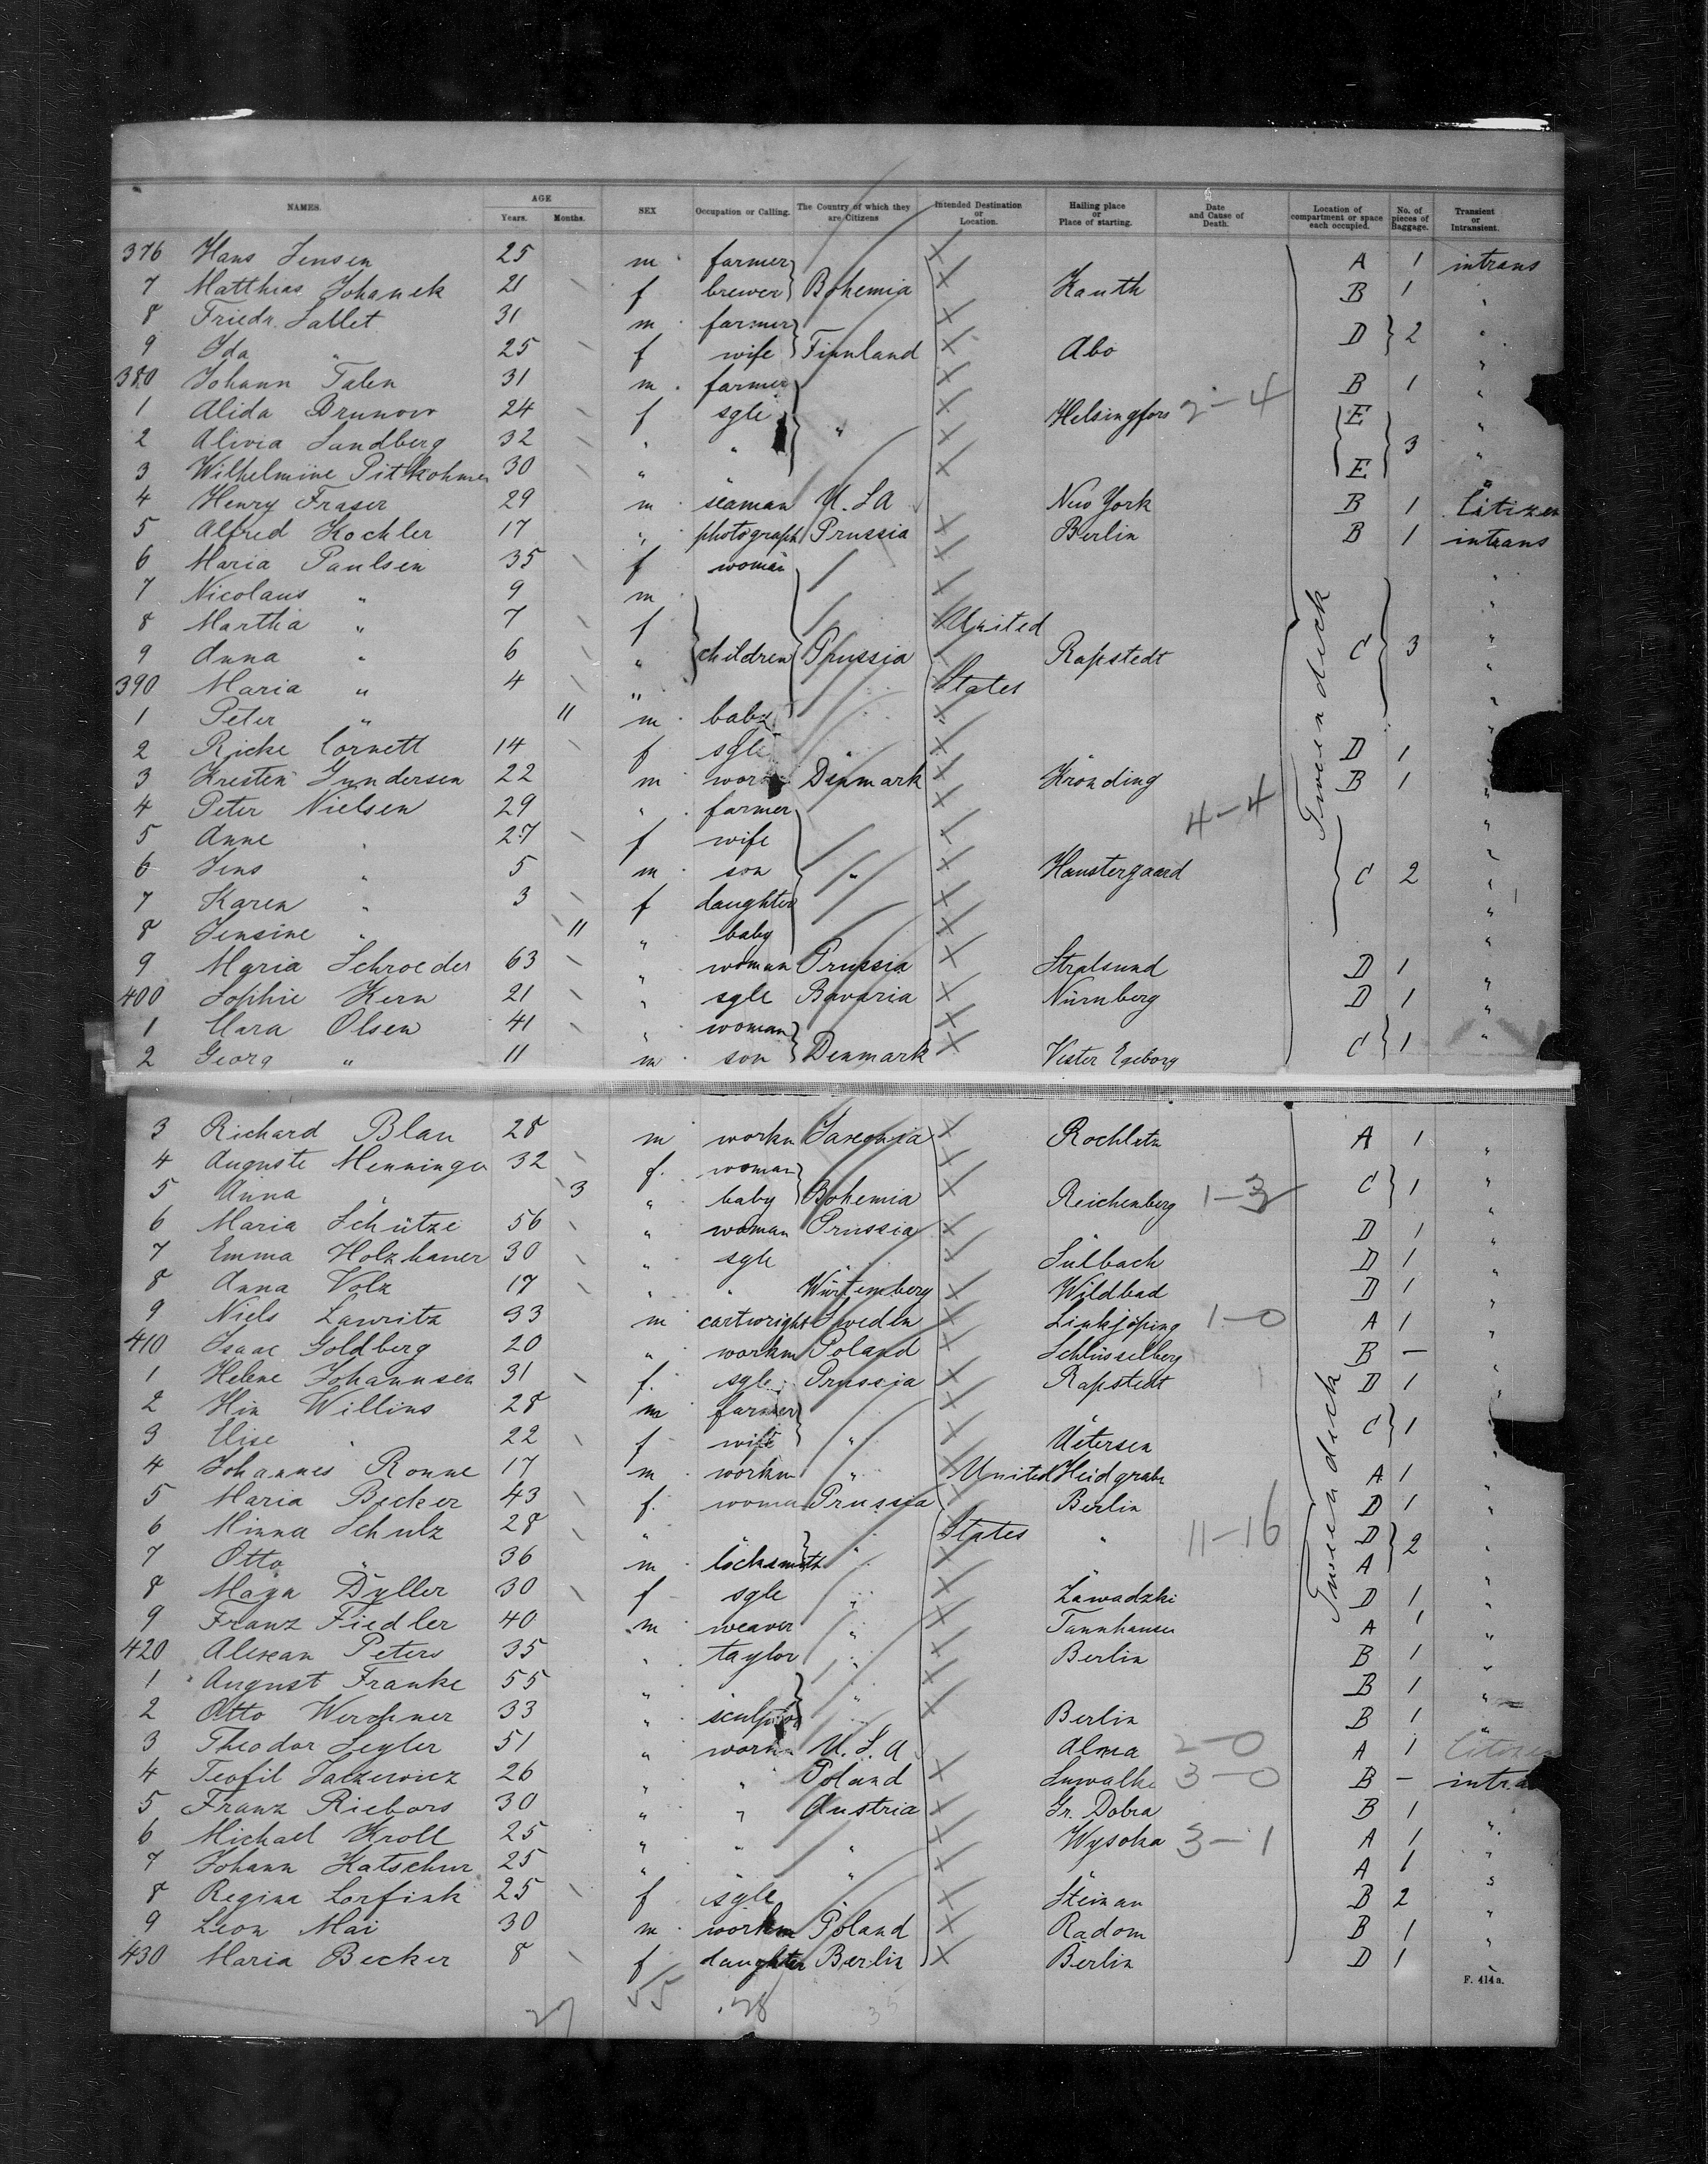 NAMES. AGE SEX Occupation or Calling. The Country of which they are Citizens Intended Destination or Location. Hailing place or Place of starting. Date and Cause of Death. Location of compartment or space each occupied. No. of pieces of Baggage. Transient or Intransient.
Years. Months.
376 Hans Jensen 25 m farmer A 1 intrans
7 Matthias Johanek 21 f brewer Bohemia Kauth B 1 "
8 Friedr. Sallet 31 m farmer
9 Ida " 25 f wife Finnland Abo D 2 "
380 Johann Talen 31 m farmer B 1 "
1 Alida Brunow 24 f sgle " Helsingfors 2-4 E "
2 Alivia Sandberg 32 " " 3 "
3 Wilhelmine 30 " E "
4 Henry Fraser 29 m seaman U.S.A New York B 1 Citizen
5 Alfred Kochler 17 " photograph Prussia Berlin B 1 intrans
6 Maria Paulsen 35 f woman "
7 Nicolaus " 9 m "
8 Martha " 7 f United "
9 Anna " 6 " children Prussia Rapstedt C 3 "
390 Maria " 4 " States "
1 Peter " 11 m baby "
2 Ricke Cornett 14 f sgle " D 1 "
3 Kresten Gundersen 22 m Denmark Kronding B 1 "
4 Peter Nielsen 29 " farmer 4-4 "
5 Anne " 27 f wife "
6 Jens " 5 m son " Haustergaard C 2 "
7 Karen " 3 f daughter "
8 Jensine " 11 " baby "
9 Maria Schroeder 63 " woman Prussia Stralsund D 1 "
400 Sophie Kern 21 " sgle Bavaria Nürnberg D 1 "
1 Clara Olsen 41 " woman
2 Georg " 11 m son Denmark Vester Egeborg C 1 "
Tweendeck
3 Richard Blau 28 m workm Rochlitz A 1 "
4 Auguste Menninger 32 f. woman
5 Anna " 3 " baby Bohemia Reichenberg 1-3 C 1 "
6 Maria Schütze 56 " woman Prussia D 1 "
7 Emma Holzhauer 30 " sgle " Sülbach D 1 "
8 Anna Volz 17 " " Würtemberg Wildbad D 1 "
9 Niels Lawritz 33 m cartwright Sweden Linkjöping 1-0 A 1 "
410 Isaac Goldberg 20 " workm Poland Schlüsselberg B - "
1 Helene Johannsen 31 f. sgle Prussia Rapstedt D 1 "
2 Hin Willins 28 m farmer
3 Elise " 22 f wife " Uetersen C 1
4 Johannes Ronne 17 m workm " United Heidgrabe A 1 "
5 Maria Becker 43 f. woman Prussia Berlin D 1 "
6 Minna Schulz 28 " States " 11-16 D 2
7 Otto " 36 m locksmith " A "
8 Dyller 30 f sgle " Zawadzki D 1 "
9 Franz Fiedler 40 m weaver " Tannhausen A 1 "
420 Alexan Peters 35 " taylor " Berlin B 1 "
1 August Franke 55 " " B 1 "
2 Otto Werchner 33 " sculptor " Berlin B 1 "
3 Theodor Segler 51 " workm U.S.A Alma 2-0 A 1 Citizen
4 Teofil 26 " " Poland Suwalki 3-0 B - intra
5 Franz Riebors 30 " " Austria Gr. Dobra B 1 "
6 Michael Kroll 25 " " " Wysoka 3-1 A 1 "
7 Johann Katschur 25 " " " " A 1 "
8 Regina Lorfink 25 f sgle " Steinau B 2 "
9 Leon Mai 30 m workm Poland Radom B 1 "
430 Maria Becker 8 f daughter Berlin Berlin D 1 "
Tweendeck
F. 414a.
27 55 28 35